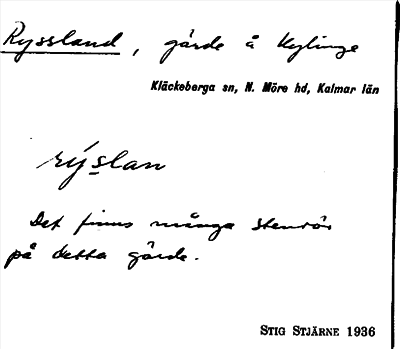 Ryssland, gärde å Kylinge
Kläckeberga sn, N. Möre hd, Kalmar län
rýslan
Det finns många stenrör
på detta gärde.
STIG STJÄRNE 1936